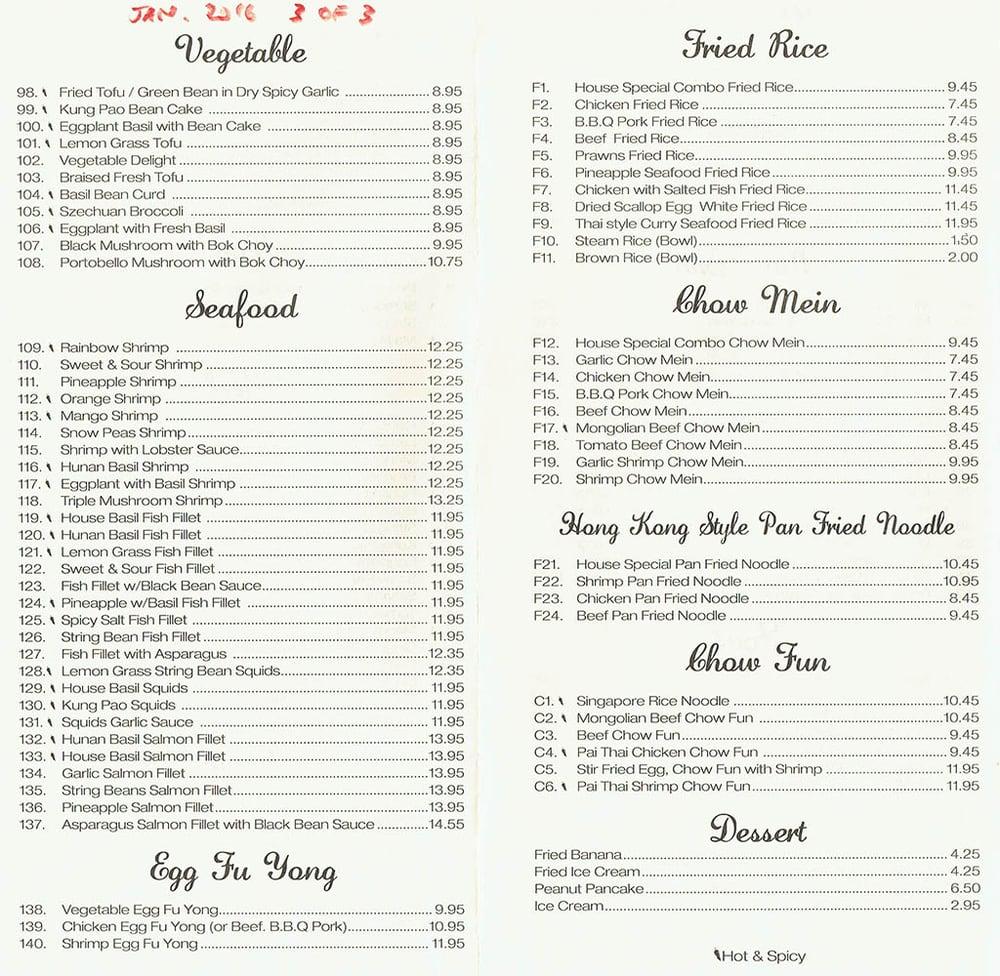 JAN. 2016 3 OF 3
Vegetable
98. Fried Tofu / Green Bean in Dry Spicy Garlic 8.95
99. Kung Pao Bean Cake 8.95
100. Eggplant Basil with Bean Cake 8.95
101. Lemon Grass Tofu 8.95
102. Vegetable Delight 8.95
103. Braised Fresh Tofu 8.95
104. Basil Bean Curd 8.95
105. Szechuan Broccoli 8.95
106. Eggplant with Fresh Basil 8.95
107. Black Mushroom with Bok Choy 9.95
108. Portobello Mushroom with Bok Choy 10.75
Seafood
109. Rainbow Shrimp 12.25
110. Sweet & Sour Shrimp 12.25
111. Pineapple Shrimp 12.25
112. Orange Shrimp 12.25
113. Mango Shrimp 12.25
114. Snow Peas Shrimp 12.25
115. Shrimp with Lobster Sauce 12.25
116. Hunan Basil Shrimp 12.25
117. Eggplant with Basil Shrimp 12.25
118. Triple Mushroom Shrimp 13.25
119. House Basil Fish Fillet 11.95
120. Hunan Basil Fish Fillet 11.95
121. Lemon Grass Fish Fillet 11.95
122. Sweet & Sour Fish Fillet 11.95
123. Fish Fillet w/Black Bean Sauce 11.95
124. Pineapple w/Basil Fish Fillet 11.95
125. Spicy Salt Fish Fillet 11.95
126. String Bean Fish Fillet 11.95
127. Fish Fillet with Asparagus 12.35
128. Lemon Grass String Bean Squids 12.35
129. House Basil Squids 11.95
130. Kung Pao Squids 11.95
131. Squids Garlic Sauce 11.95
132. Hunan Basil Salmon Fillet 13.95
133. House Basil Salmon Fillet 13.95
134. Garlic Salmon Fillet 13.95
135. String Beans Salmon Fillet 13.95
136. Pineapple Salmon Fillet 13.95
137. Asparagus Salmon Fillet with Black Bean Sauce 14.55
Egg Fu Yong
138. Vegetable Egg Fu Yong 9.95
139. Chicken Egg Fu Yong (or Beef. B.B.Q Pork) 10.95
140. Shrimp Egg Fu Yong 11.95
Fried Rice
F1. House Special Combo Fried Rice 9.45
F2. Chicken Fried Rice 7.45
F3. B.B.Q Pork Fried Rice 7.45
F4. Beef Fried Rice 8.45
F5. Prawns Fried Rice 9.95
F6. Pineapple Seafood Fried Rice 9.95
F7. Chicken with Salted Fish Fried Rice 11.45
F8. Dried Scallop Egg White Fried Rice 11.45
F9. Thai style Curry Seafood Fried Rice 11.95
F10. Steam Rice (Bowl) 1.50
F11. Brown Rice (Bowl) 2.00
Chow Mein
F12. House Special Combo Chow Mein 9.45
F13. Garlic Chow Mein 7.45
F14. Chicken Chow Mein 7.45
F15. B.B.Q Pork Chow Mein 7.45
F16. Beef Chow Mein 8.45
F17. Mongolian Beef Chow Mein 8.45
F18. Tomato Beef Chow Mein 8.45
F19. Garlic Shrimp Chow Mein 9.95
F20. Shrimp Chow Mein 9.95
Hong Kong Style Pan Fried Noodle
F21. House Special Pan Fried Noodle 10.45
F22. Shrimp Pan Fried Noodle 10.95
F23. Chicken Pan Fried Noodle 8.45
F24. Beef Pan Fried Noodle 9.45
Chow Fun
C1. Singapore Rice Noodle 10.45
C2. Mongolian Beef Chow Fun 10.45
C3. Beef Chow Fun 9.45
C4. Pai Thai Chicken Chow Fun 9.45
C5. Stir Fried Egg, Chow Fun with Shrimp 11.95
C6. Pai Thai Shrimp Chow Fun 11.95
Dessert
Fried Banana 4.25
Fried Ice Cream 4.25
Peanut Pancake 6.50
Ice Cream 2.95
Hot & Spicy